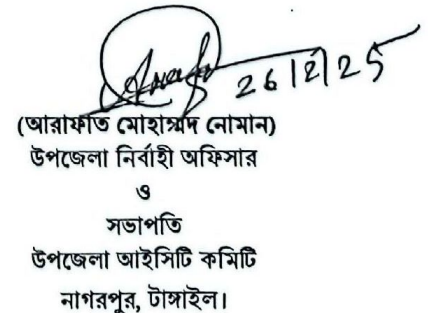 26/2/25
(আরাফাত মোহাম্মদ নোমান)
উপজেলা নির্বাহী অফিসার
ও
সভাপতি
উপজেলা আইসিটি কমিটি
নাগরপুর, টাঙ্গাইল।